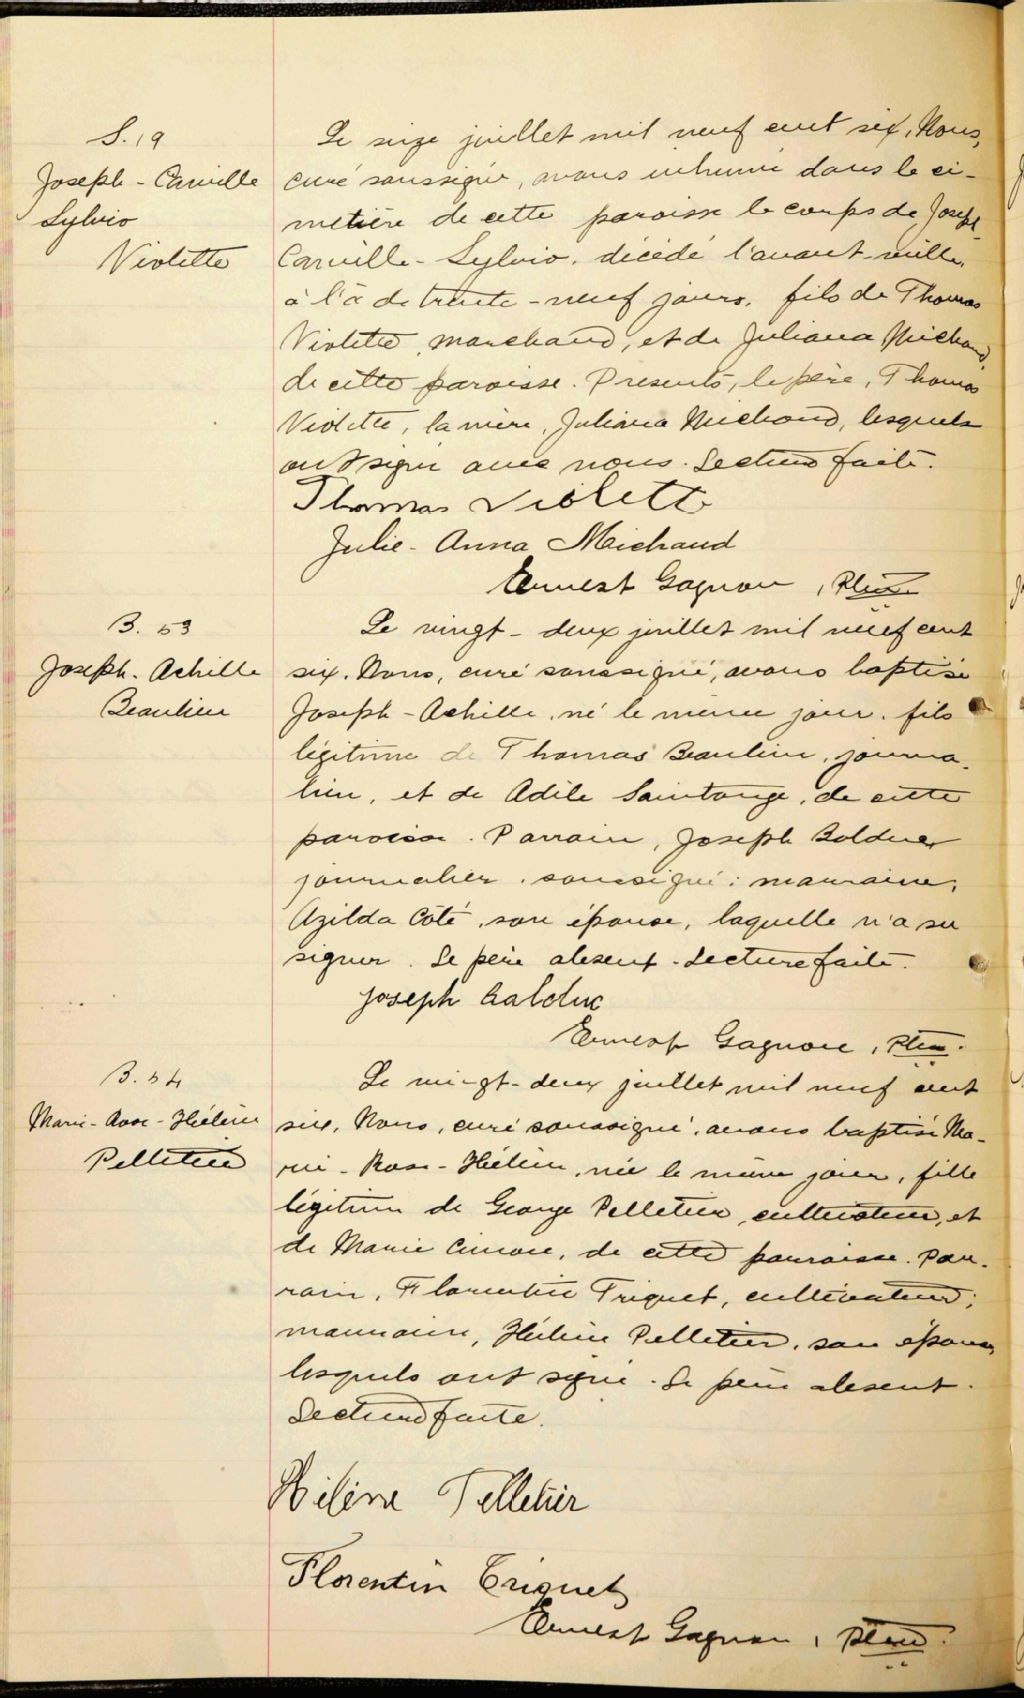 S. 19
Joseph - Camille
Sylvio
Violette
Le seize juillet mil neuf cent six, Nous,
curé soussigné, avons inhumé dans le ci-
metière de cette paroisse le corps de Joseph
Camille - Sylvio, décédé l'avant-veille,
à l'â de trente-neuf jours, fils de Thomas
Violette, marchand, et de Juliana Michaud,
de cette paroisse. Présents, le père, Thomas
Violette, la mère, Juliana Michaud, lesquels
ont signé avec nous. Lecture faite.
Thomas Violette
Julie-Anna Michaud
Ernest Gagnon, Ptre
B. 53
Joseph-Achille
Beaulieu
Le vingt-deux juillet mil neuf cent
six, Nous, curé soussigné, avons baptisé
Joseph-Achille, né le même jour, fils
légitime de Thomas Beaulieu, journa-
lier, et de Adèle Saintonge, de cette
paroisse. Parrain, Joseph Bolduc
journalier, soussigné; marraine,
Azilda Côté, son épouse, laquelle n'a su
signer. Le père absent. Lecture faite.
Joseph Balduc
Ernest Gagnon, Ptre.
B. 54
Marie-Rose-Hélène
Pelletier
Le vingt-deux juillet mil neuf cent
six, Nous, curé soussigné, avons baptisé Ma-
rie-Rose-Hélène, née le même jour, fille
légitime de George Pelletier, cultivateur, et
de Marie Simon, de cette paroisse. Par-
rain, Florentin Triquet, cultivateur;
marraine, Hélène Pelletier, son épouse,
lesquels ont signé. Le père absent.
Lecture faite.
Hélène Pelletier
Florentin Triquet
Ernest Gagnon, Ptre.